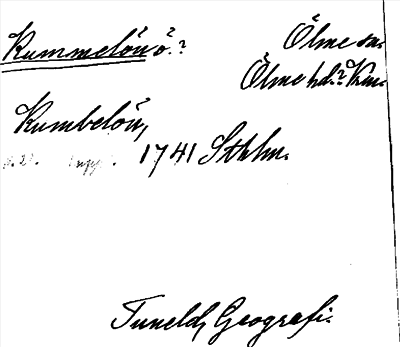 Kummelön ö.?
Ölme sn.
Ölme hd.? Vrm.
Kumbelön,
1741 Sthlm.
Tuneld, Geografi.